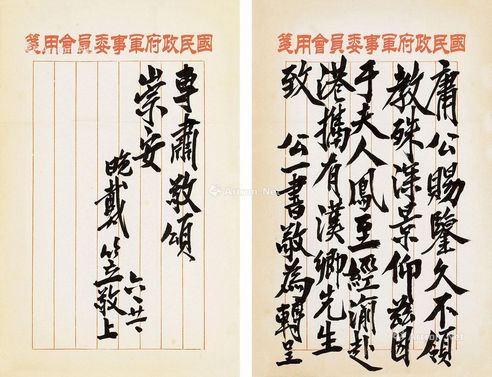 國民政府軍事委員會用箋
庸公賜鑒久不領
教殊深景仰茲因
于夫人鳳至經渝赴
港攜有漢卿先生
致 公一書敬為轉呈
國民政府軍事委員會用箋
專肅敬頌
崇安
晚戴笠敬上
六